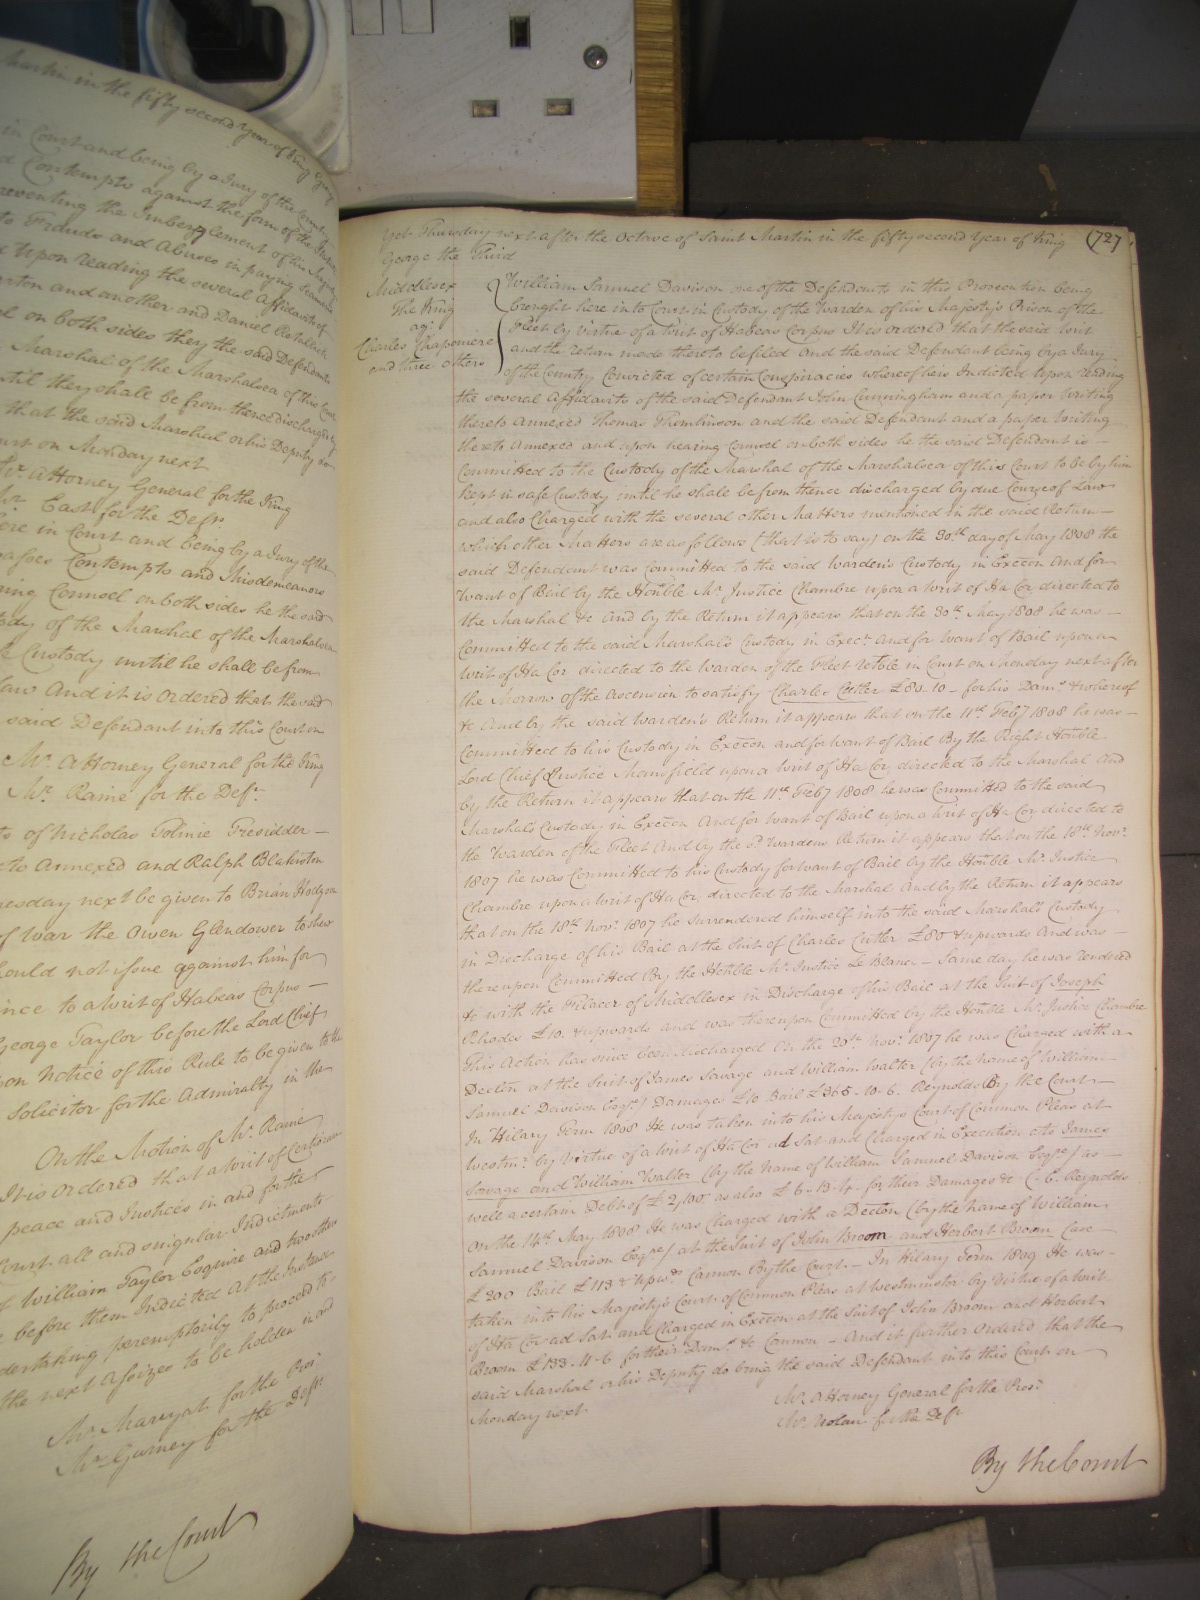 Martin in the fifty second Year of King George
in Court and being by a Jury of the Country
Contempts against the form of the Statute
preventing the Imbezzlement of his Majesty's
to Frauds and Abuses in paying Seamen
Upon reading the several Affidavits of
and another and Daniel
on both sides they the said Defendants
Marshal of the Marshalsea of this Court
until they shall be from thence discharged by
that the said Marshal or his Deputy do
Court on Monday next
Mr. Attorney General for the King
Mr. East for the Defts.
here in Court and being by a Jury of the
Contempts and Misdemeanors
Counsel on both sides he the said
Custody of the Marshal of the Marshalsea
Custody until he shall be from
Law And it is Ordered that the said
said Defendant into this Court on
Mr. Attorney General for the King
Mr. Raine for the Deft.
of Nicholas Tolmie Presidder
to annexed and Ralph Blakiston
next be given to Brian Hodgson
of War the Owen Glendower to shew
should not issue against him for
to a Writ of Habeas Corpus
George Taylor before the Lord Chief
upon Notice of this Rule to be given to the
Solicitor for the Admiralty in the
On the Motion of Mr. Raine
It is Ordered that a Writ of Certiorari
peace and Justices in and for the
Court all and singular Indictments
of William Taylor Esquire and two others
before them Indicted At the Instance
undertaking peremptorily to proceed to
the next Assizes to be holden in and
Mr. Maryat for the Pros.
Mr. Gurney for the Defts.
By the Court
Yet Thursday next after the Octave of Saint Martin in the fifty second Year of King (727
George the Third
Middlesex
The King
agt.
Charles Chaponiere
and three others
William Samuel Davison one of the Defendants in this Prosecution being
brought here in to Court in Custody of the Warden of his Majesty's Prison of the
Fleet by virtue of a writ of Habeas Corpus It is ordered that the said Writ
and the return made thereto be filed And the said Defendant being by a Jury
of the Country Convicted of certain Conspiracies whereof he is Indicted Upon reading
the several Affidavits of the said Defendant John Cunningham and a paper Writing
thereto annexed Thomas Thomlinson and the said Defendant and a paper Writing
thereto Annexed and upon hearing Counsel on both sides he the said Defendant is
Committed to the Custody of the Marshal of the Marshalsea of this Court to be by him
kept in safe Custody until he shall be from thence discharged by due Course of Law
and also Charged with the several other Matters mentioned in the said Return
which other Matters are as follows (that is to say) on the 30th. day of May 1808 the
said Defendant was Committed to the said Warden's Custody in Execon And for
Want of Bail by the Honble Mr. Justice Chambre upon a writ of Ha Cor directed to
the Marshal &c And by the Return it appears that on the 30th. May 1808 he was
Committed to the said Marshal's Custody in Exect. And for Want of Bail upon a
writ of Ha Cor directed to the Warden of the Fleet retble in Court on Monday next after
the Morrow of the Ascension to satisfy Charles Cutler £80.10 - for his Dams. & whereof
&c And by the said Warden's Return it appears that on the 11th. Feby 1808 he was
Committed to his Custody in Execon and for want of Bail By the Right Honble
Lord Chief Justice Mansfield upon a Writ of Ha Cor directed to the Marshal And
by the Return it appears that on the 11th. Feby 1808 he was Committed to the said
Marshal's Custody in Execon And for want of Bail upon a writ of Ha Cor directed to
the Warden of the Fleet And by the sd. Wardens Return it appears that on the 18th. Novr.
1807 he was Committed to his Custody for want of Bail by the Honble Mr. Justice
Chambre upon a Writ of Ha Cor directed to the Marshal And by the Return it appears
that on the 18th. Novr. 1807 he surrendered himself into the said Marshal's Custody
in Discharge of his Bail at the Suit of Charles Cutler £80 & upwards And was
thereupon Committed By the Honble Mr. Justice Le Blanc - Same day he was rendered
&c with the Filacer of Middlesex in Discharge of his Bail at the Suit of Joseph
Rhodes £10. & upwards and was thereupon Committed by the Honble Mr. Justice Chambre
This Action has since been discharged On the 20th Novr. 1807 he was Charged with a
Declon at the Suit of James Savage and William Walter (by the name of William
Samuel Davison Esqre.) Damages £10 Bail £365.10.6. Reynolds By the Court
In Hilary Term 1808 He was taken into his Majesty's Court of Common Pleas at
Westmr. by Virtue of a writ of Ha Cor ad Sat and Charged in Execution ats James
Savage and William Walter (by the Name of William Samuel Davison Esqre.) as
well a certain Debt of £2,100 as also £6.13.4. for their Damages &c C. E. Reynolds
On the 14th May 1808 He was Charged with a Declon (by the name of William
Samuel Davison Esqre.) at the Suit of John Broom and Herbert Broom Case
£200 Bail £113 & upwds. Cannon By the Court - In Hilary Term 1809 He was
taken into his Majesty's Court of Common Pleas at Westminster by Virtue of a Writ
of Ha Cor ad Sat. and Charged in Execon at the Suit of John Broom and Herbert
Broom £133.11.6 for their Dams. &c Cannon - And it further Ordered that the
said Marshal or his Deputy do bring the said Defendant into this Court on
Monday next
Mr. Attorney General for the Prosr.
Mr. Nolan for the Deft.
By the Court